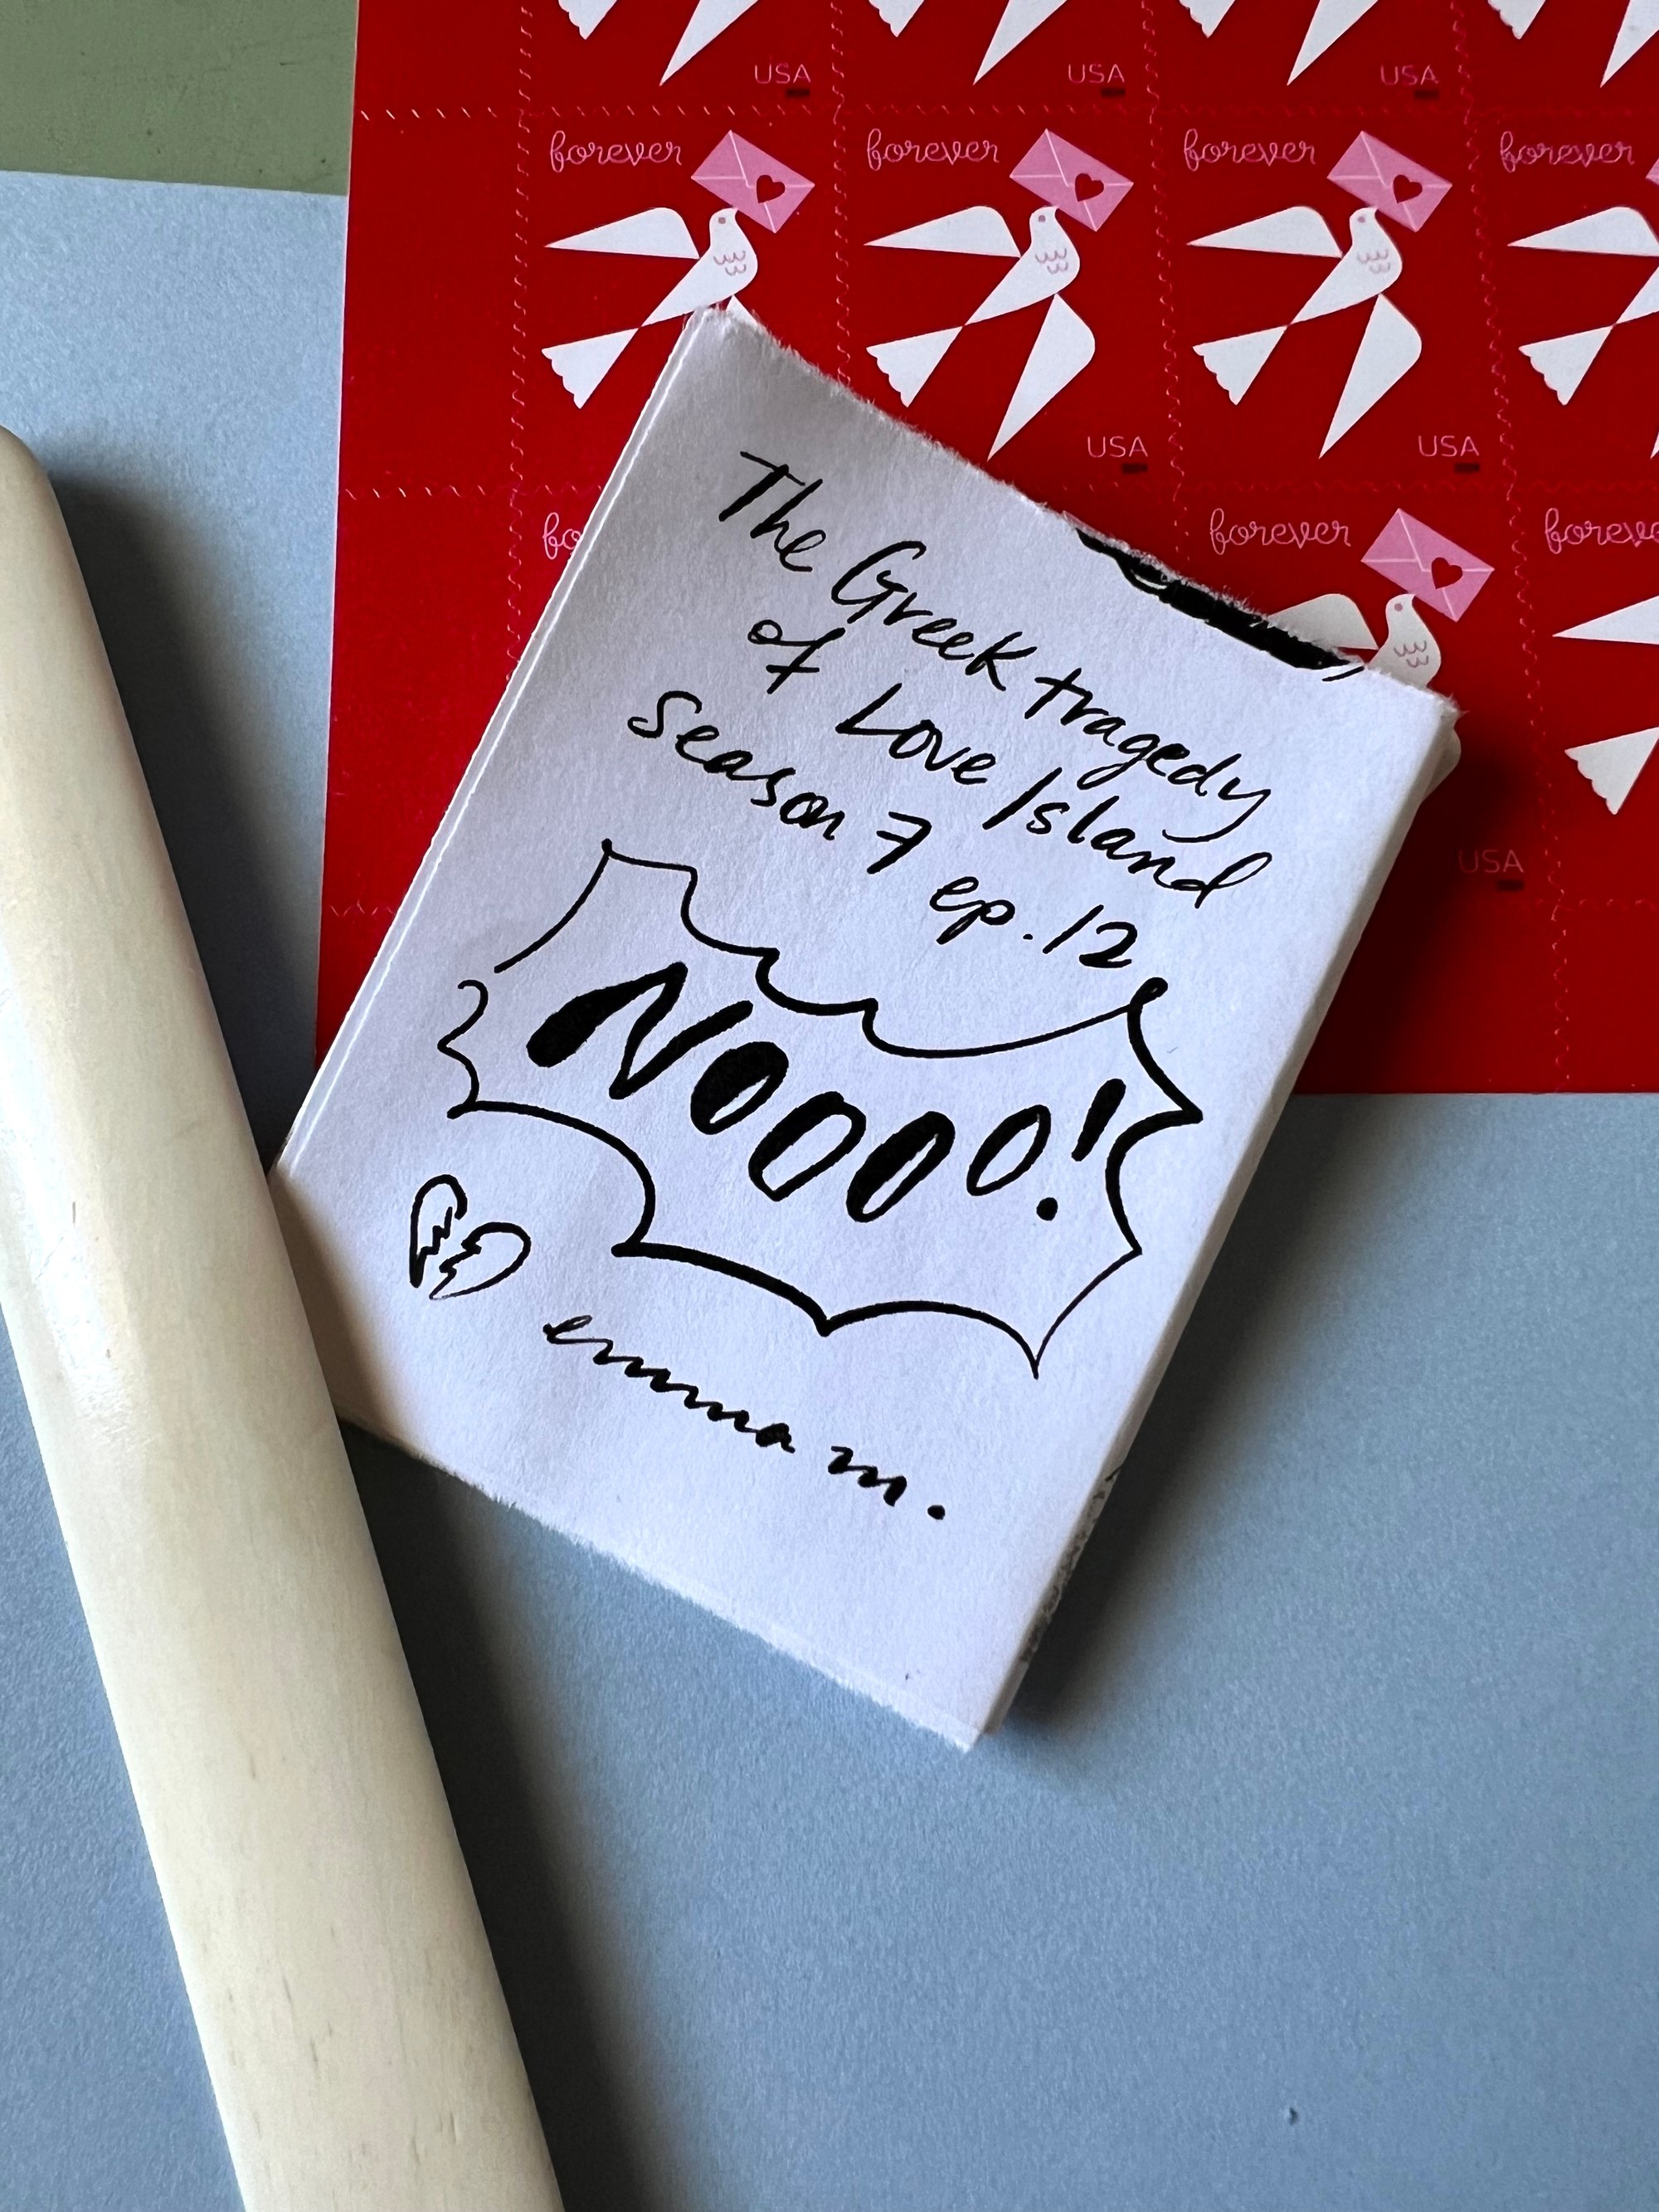 USA
USA
USA
forever
forever
forever
forever
USA
USA
forever
USA
The Greek tragedy
of Love Island
season 7 ep. 12
NOOOO!
emma m.